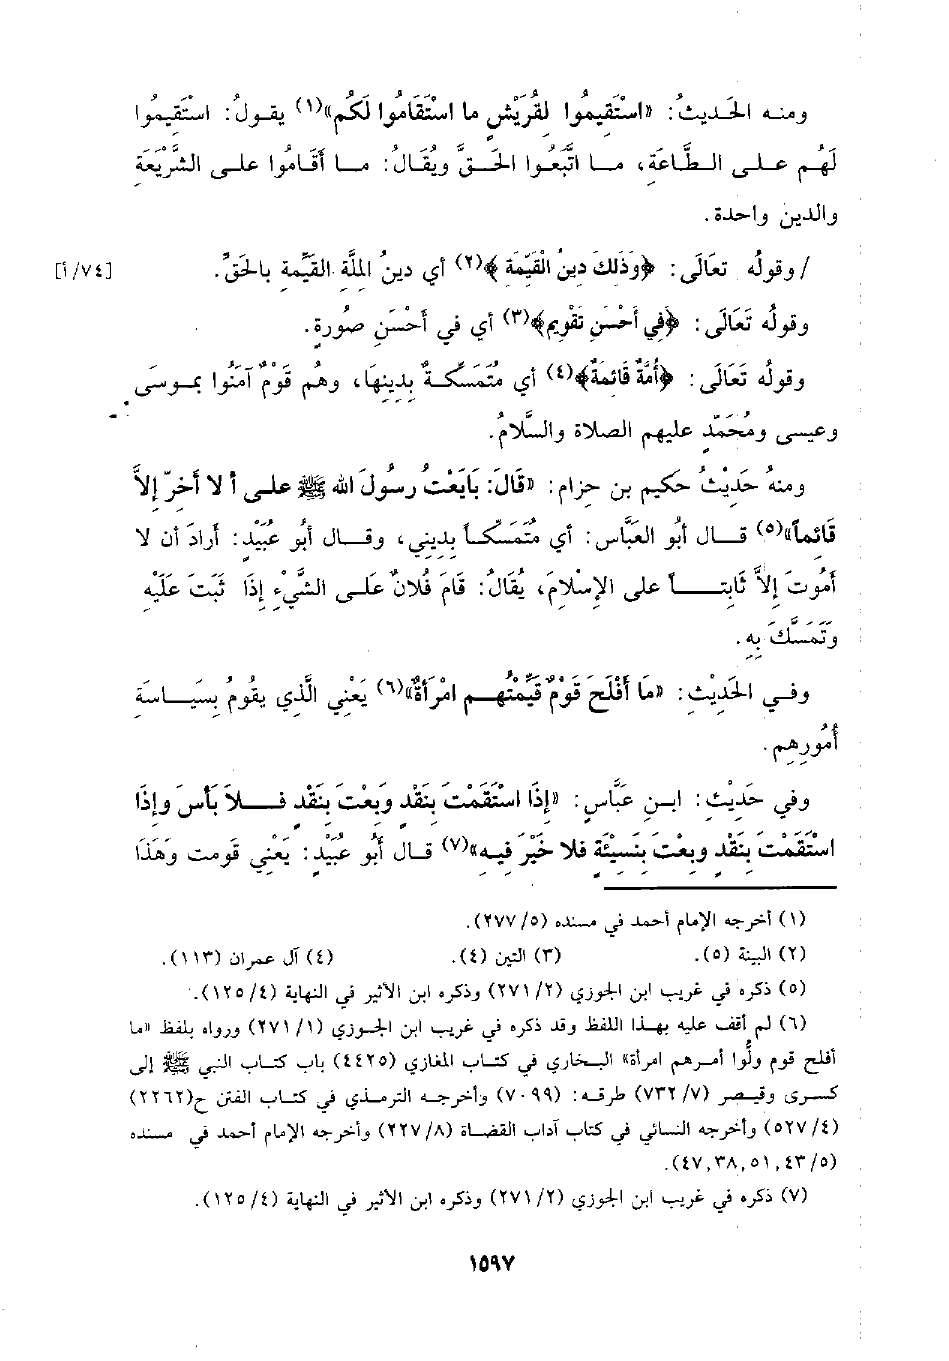 ومنه الحَديثُ: «اسْتَقيمُوا لقُرَيْشٍ ما اسْتَقَامُوا لَكُم»(١) يقولُ: اسْتَقِيمُوا
لَهُم على الطَّاعَةِ، ما اتَّبَعُوا الحَقَّ ويُقَالُ: ما أَقَامُوا على الشَّرِيْعَةِ
والدين واحدة.
/ وقولُه تعَالَى: ﴿وَذَلكَ دينُ الْقَيّمَة ﴾(٢) أي دينُ المِلَّةِ القَيِّمةِ بالحَقِّ. [٧٤/أ]
وقولُه تَعَالَى: ﴿فِي أَحْسَنِ تَقْوِيمٍ﴾(٣) أي في أَحْسَنِ صُورةٍ.
وقولُه تَعَالَى: ﴿أُمَّةٌ قَائمَةٌ﴾(٤) أي مُتَمَسِّكةٌ بِدِينِهَا، وهُم قَوْمٌ آمَنُوا بموسَى
وعيسى ومُحَمّدٍ عليهم الصلاة والسَّلامُ.
ومنهُ حَدِيْثُ حَكيم بن حِزام: «قَالَ: بَايَعْتُ رسُولَ الله ﷺ على أ لا أَخرّ إلاَّ
قَائماً»(٥) قال أبُو العَبَّاس: أي مُتَمَسِّكاً بِدِيني، وقال أبُو عُبَيْدٍ: أرادَ أن لا
أَمُوتَ إلاَّ ثَابتاً على الإسْلامِ، يُقَالُ: قَامَ فُلانٌ عَلى الشَّيْءِ إذَا ثَبَتَ عَلَيْهِ
وَتَمَسَّكَ بِهِ.
وفي الحَدِيْثِ: «مَا أَفْلَحَ قَوْمٌ قَيِّمُتُهم امْرَأةٌ»(٦) يَعْنِي الَّذِي يقُومُ بِسَيَاسَةِ
أُمُورِهِم.
وفي حَدِيْث: ابنِ عَبَّاسٍ: «إذَا اسْتَقَمْتَ بنَقْدٍ وَبعْتَ بنَقْدٍ فلاَ بَأسَ وإذَا
اسْتَقَمْتَ بنَقْدٍ وبعْتَ بنَسيْئَةٍ فَلا خَيْرَ فيه»(٧) قال أبُو عُبَيْدٍ: يَعْني قَومت وَهَذَا
(١) أخرجه الإمام أحمد في مسنده (٢٧٧/٥).
(٢) البينة (٥). (٣) التين (٤). (٤) آل عمران (١١٣).
(٥) ذكره في غريب ابن الجوزي (٢٧١/٢) وذكره ابن الأثير في النهاية (١٢٥/٤).
(٦) لم أقف عليه بهذا اللفظ وقد ذكره في غريب ابن الجوزي (٢٧١/١) ورواه بلفظ «ما
أفلح قوم ولُّوا أمرهم امرأة» البخاري في كتاب المغازي (٤٤٢٥) باب كتاب النبي ﷺ إلى
كسرى وقيصر (٧٣٢/٧) طرقه: (٧٠٩٩) وأخرجه الترمذي في كتاب الفتن ح(٢٢٦٢)
(٥٢٧/٤) وأخرجه النسائي في كتاب آداب القضاة (٢٢٧/٨) وأخرجه الإمام أحمد في مسنده
(٤٧,٣٨,٥١,٤٣/٥).
(٧) ذكره في غريب ابن الجوزي (٢٧١/٢) وذكره ابن الأثير في النهاية (١٢٥/٤).
١٥٩٧